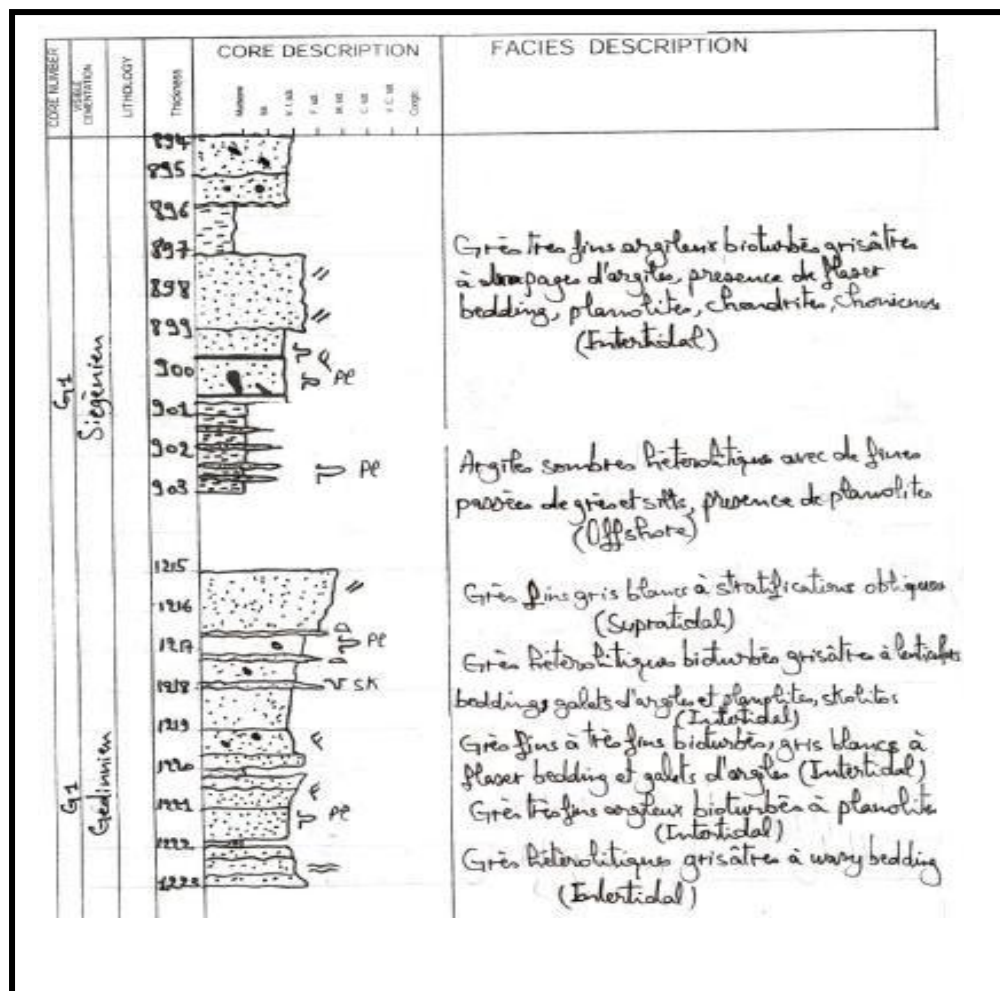 CORE NUMBER
VISIBLE CEMENTATION
LITHOLOGY
Thickness
CORE DESCRIPTION
FACIES DESCRIPTION
894
895
896
897
898
899
900
901
902
903
G1
Siégénien
F
Pl
Pl
Grès très fins argileux bioturbés grisâtres
à drapages d'argiles, presence de flaser
bedding, planolites, chondrites,
(Intertidal)
Argiles sombres hétérolitiques avec de fines
passées de grès et silts, presence de planolites
(Offshore)
1215
1216
1217
1218
1219
1220
1221
1222
1223
G1
Gedinnien
Pl
SK
F
F
Pl
Grès fins gris blancs à stratifications obliques
(Supratidal)
Grès hétérolitiques bioturbés grisâtres à
bedding, galets d'argiles et planolites, skolitos
(Intertidal)
Grès fins à très fins bioturbés, gris blancs à
flaser bedding et galets d'argiles (Intertidal)
Grès très fins argileux bioturbés à planolites
(Intertidal)
Grès hétérolitiques grisâtres à wavy bedding
(Intertidal)